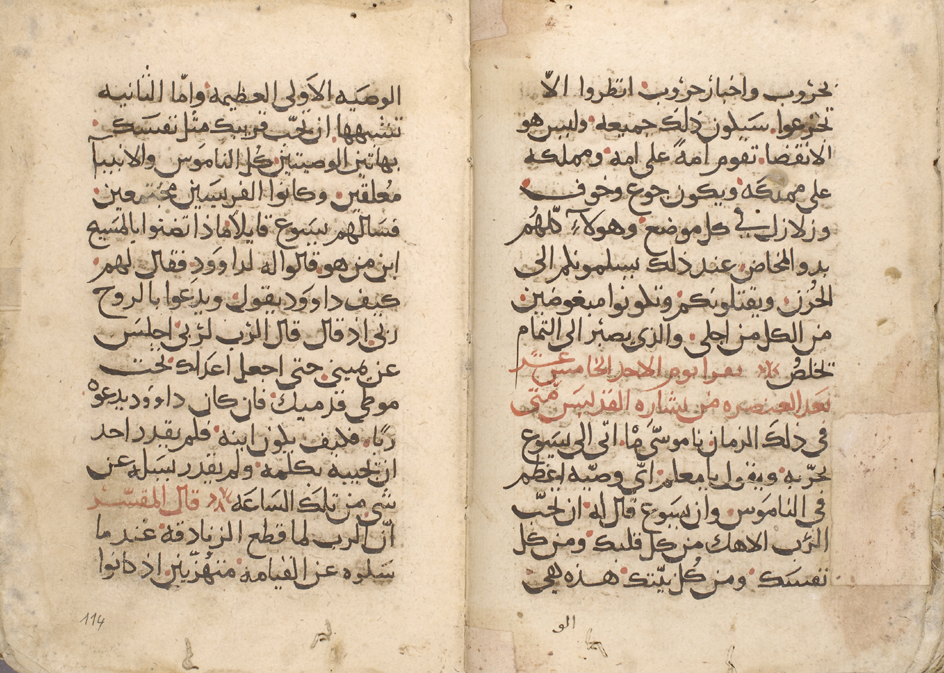 بحروب واخبار حروب انظروا الاّ
تجزعوا سيكون ذلك جميعه وليس هو
الانقضا تقوم امةً على امه ومملكه
على مملكه ويكون جوع وخوف
وزلازل في كل موضع وهولآء كلهم
بدو المخاض عند ذلك يسلمونكم الى
الحزن ويقتلونكم وتكونوا مبغوضين
من الكل من اجلي والذي يصبر الى التمام
يخلص يقرا يوم الاحد الخامس عشر
بعد العنصره من بشاره القديس متى
في ذلك الزمان ناموسي ما اتى الى يسوع
يجرّبه ويقول يا معلم ايّ وصيّه اعظم
في الناموس وان يسوع قال له ان تحبّ
الرّب الاهك من كل قلبك ومن كل
نفسك ومن كل نيّتك هذه هي
الو
الوصيه الاولى العظيمه وامّا الثانيه
تشبهها ان تحبّ قريبك مثل نفسك
بهاتين الوصيتين كل الناموس والانبيا
معلقين وكانوا الفريسيين مجتمعين
فسالهم يسوع قايلا ماذا تظنوا بالمسيح
ابن من هو قالوا له لداوود فقال لهم
كيف داوود يقول ويدعوا بالروح
ربي اذ قال قال الرب لربي اجلس
عن يميني حتى اجعل اعداك تحت
موطي قدميك فان كان داوود يدعوه
ربّا فكيف يكون ابنه فلم يقدر احد
ان يجيبه بكلمه ولم يقدر يسله عن
شي من تلك الساعه قال المفسّر
انّ الرب لما قطع الزنادقة عندما
سالوه عن القيامه متهزّيين اذ كانوا
114